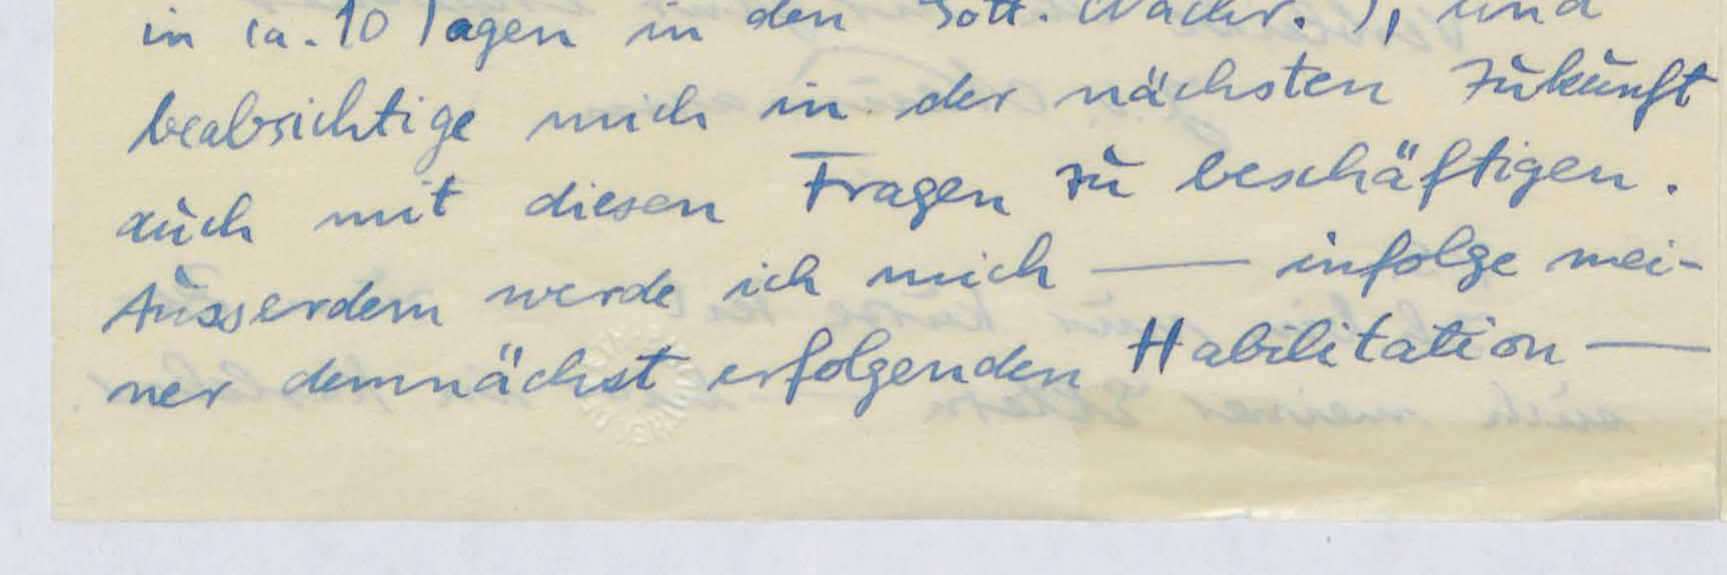 in ca. 10 Tagen in den Gött. Nachr.), und
beabsichtige mich in der nächsten Zukunft
auch mit diesen Fragen zu beschäftigen.
Ausserdem werde ich mich — infolge mei-
ner demnächst erfolgenden Habilitation —